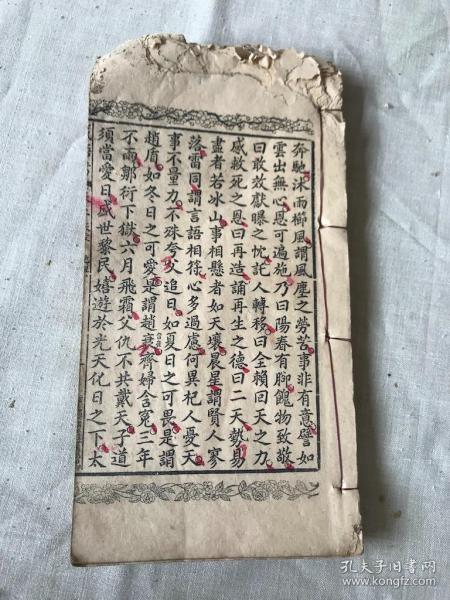 奔馳沐雨櫛風謂風塵之勞苦事非有意譬如
雲出無心恩可遍施乃曰陽春有腳餽物致敬
曰敢效獻曝之忱託人轉移曰全賴回天之力
感救死之恩曰再造誦再生之德曰二天勢易
盡者若冰山事相懸者如天壤晨星謂賢人寥
落雷同謂言語相符心多過慮何異杞人憂天
事不量力不殊夸父追日如夏日之可畏是謂
趙盾如冬日之可愛是謂趙衰齊婦含冤三年
不雨鄒衍下獄六月飛霜父仇不共戴天子道
須當愛日盛世黎民嬉遊於光天化日之下太
孔夫子旧书网
www.kongfz.com